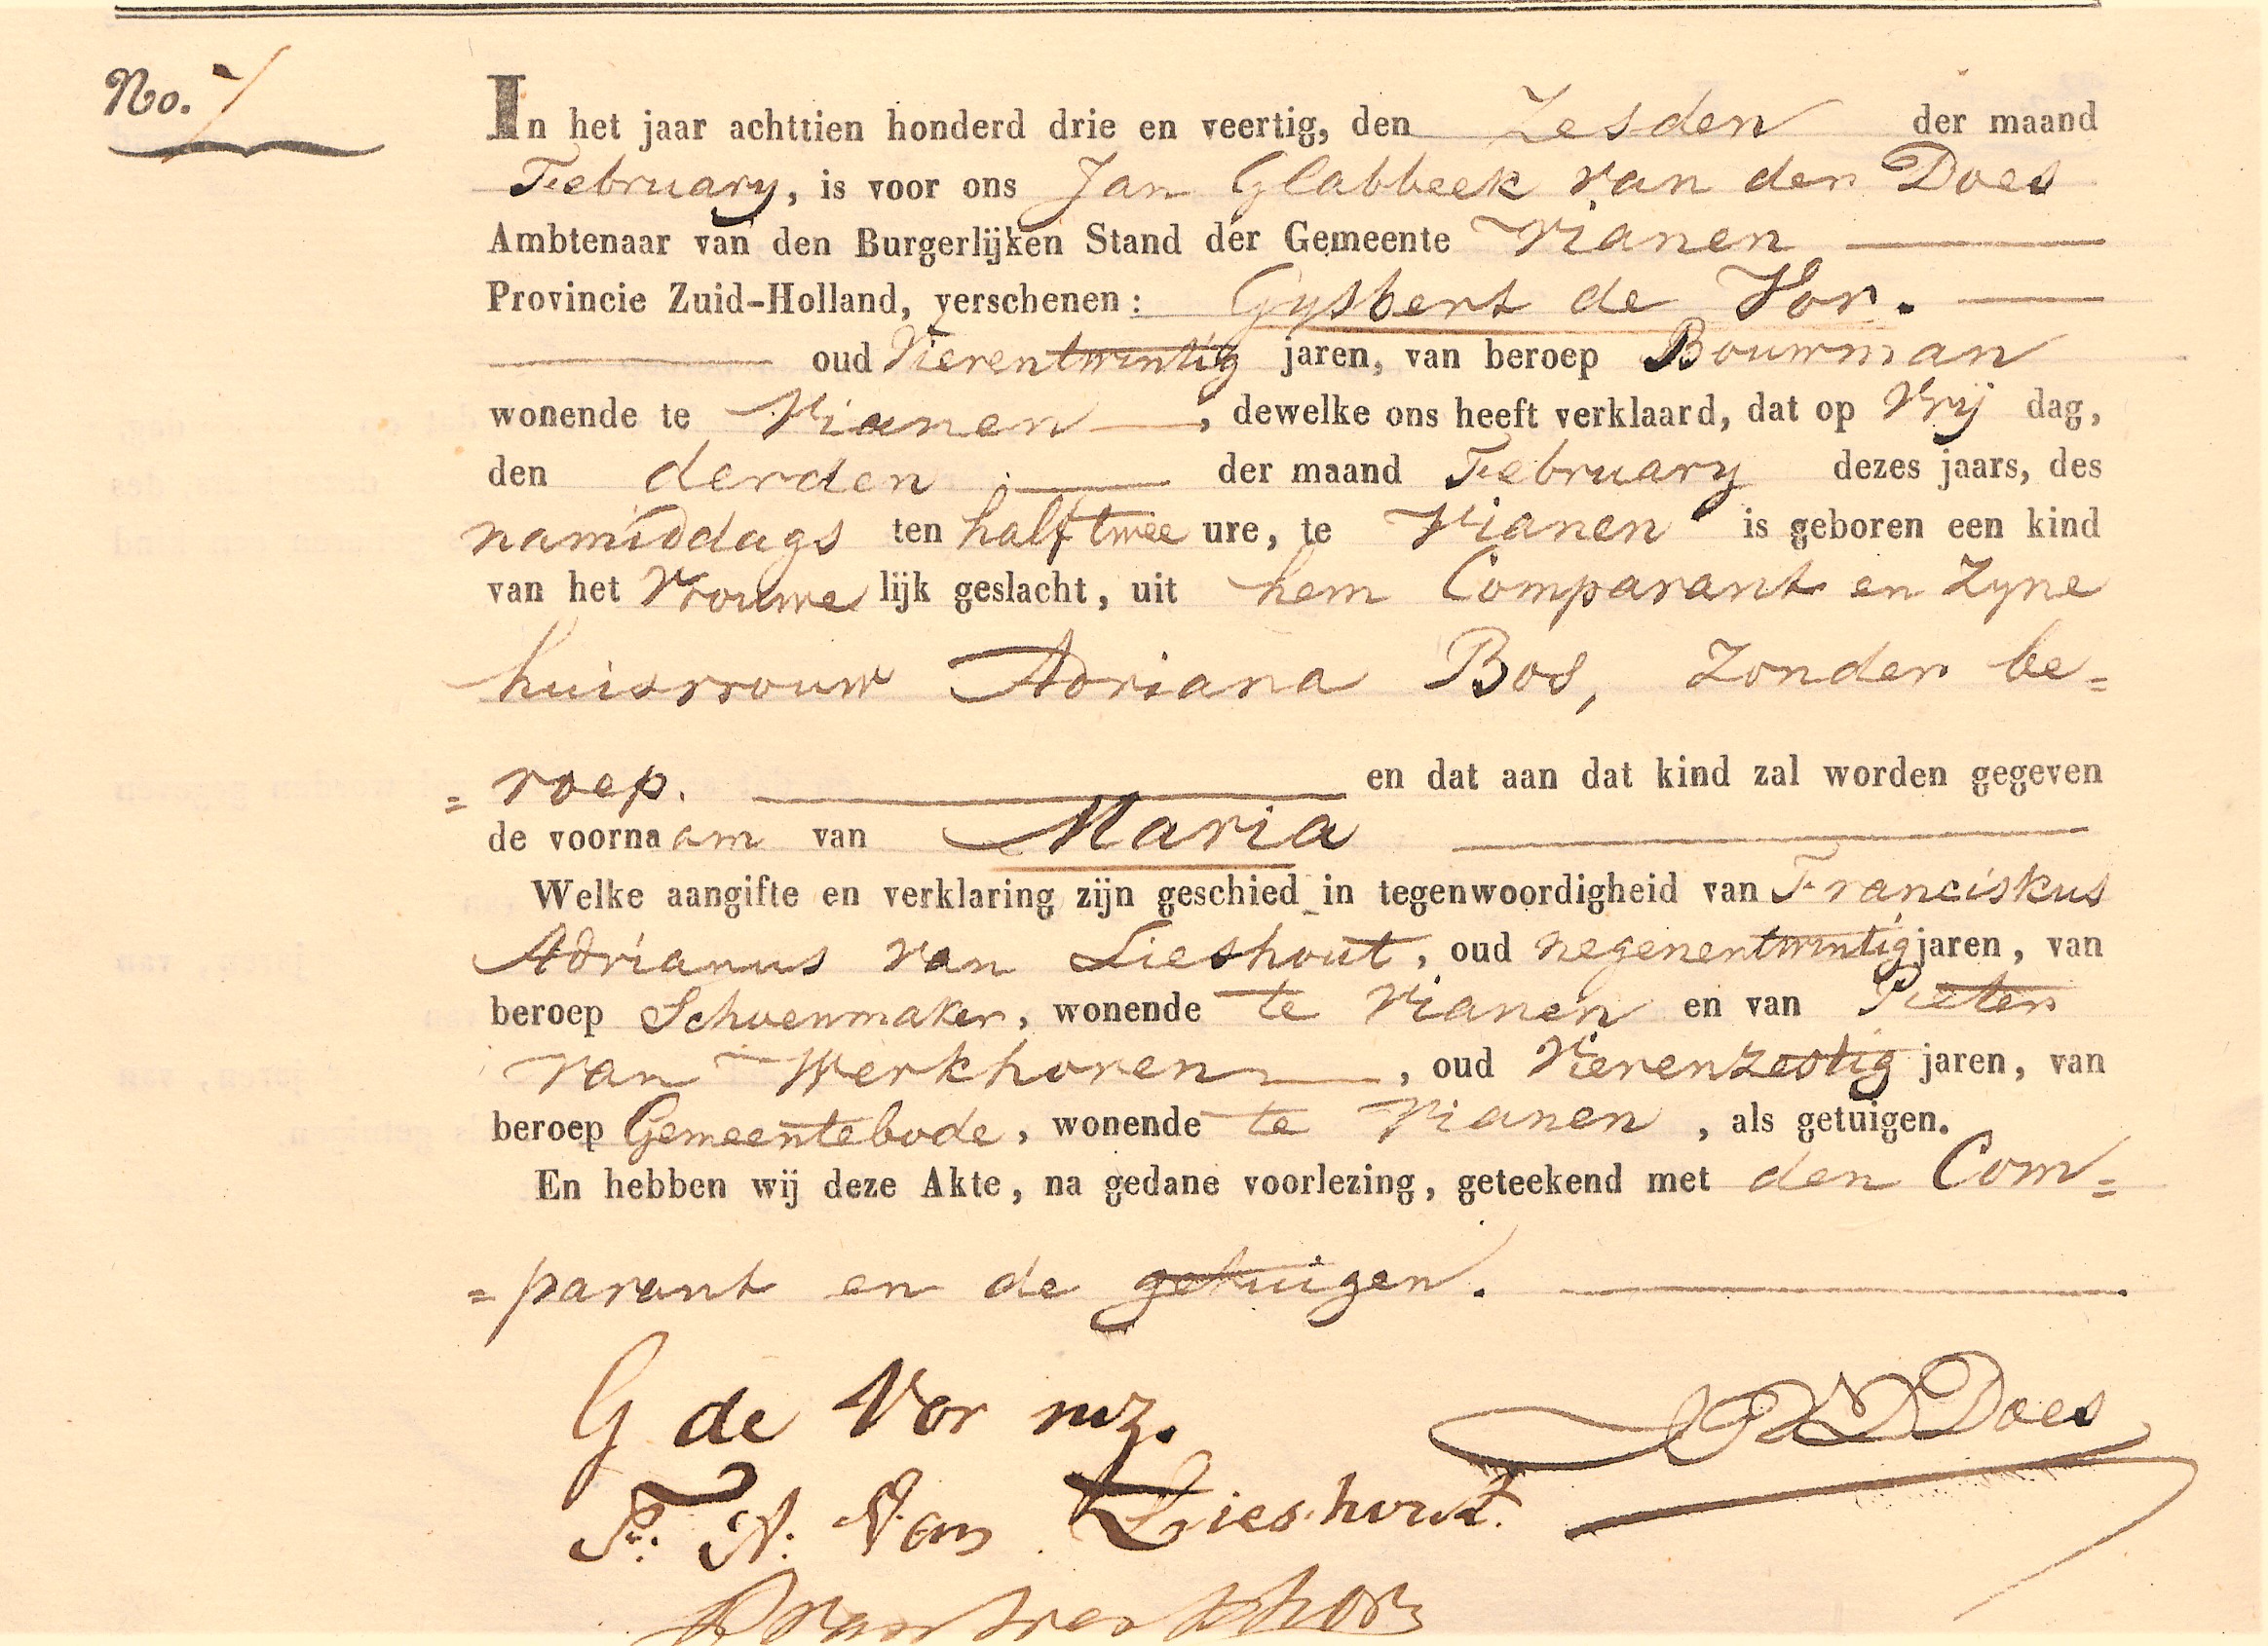 No. 7
In het jaar achttien honderd drie en veertig, den Zesden der maand
February, is voor ons Jan Glabbeek van der Does
Ambtenaar van den Burgerlijken Stand der Gemeente Vianen
Provincie Zuid-Holland, verschenen: Gysbert de Vor.
oud Vierentwintig jaren, van beroep Bouwman
wonende te Vianen, dewelke ons heeft verklaard, dat op Vrij dag,
den derden der maand February dezes jaars, des
namiddags ten half twee ure, te Vianen is geboren een kind
van het Vrouwe lijk geslacht, uit hem Comparant en Zyne
huisvrouw Adriana Bos, Zonder be=
=roep. en dat aan dat kind zal worden gegeven
de voornaam van Maria
Welke aangifte en verklaring zijn geschied in tegenwoordigheid van Franciskus
Adrianus van Lieshout, oud negenentwintig jaren, van
beroep Schoenmaker, wonende te Vianen en van Pieter
van Werkhoven, oud Vierenzestig jaren, van
beroep Gemeentebode, wonende te Vianen, als getuigen.
En hebben wij deze Akte, na gedane voorlezing, geteekend met den Com=
=parant en de getuigen.
G de Vor
Does
F: A: Van Lieshout.